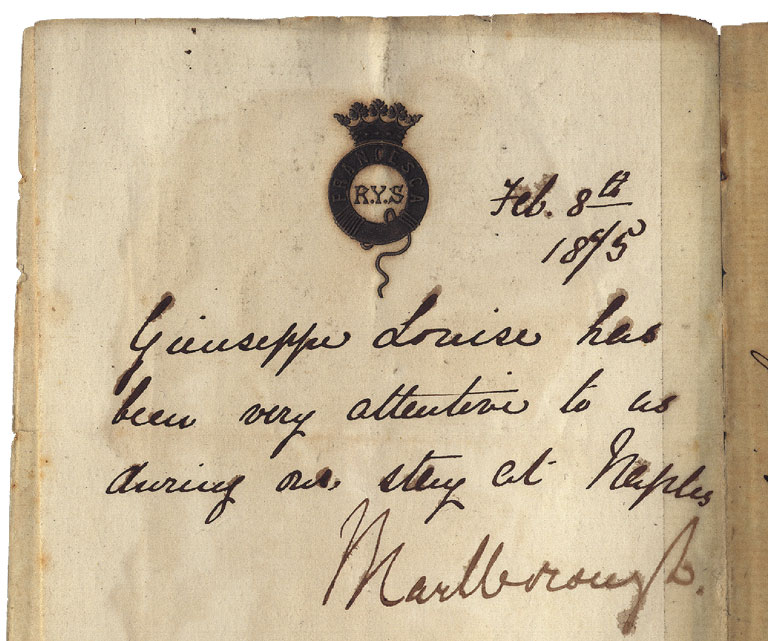 FRANCESCA
R.Y.S
Feb. 8th
1875
Giuseppe Louise has
been very attentive to us
during our stay at Naples
Marlborough.